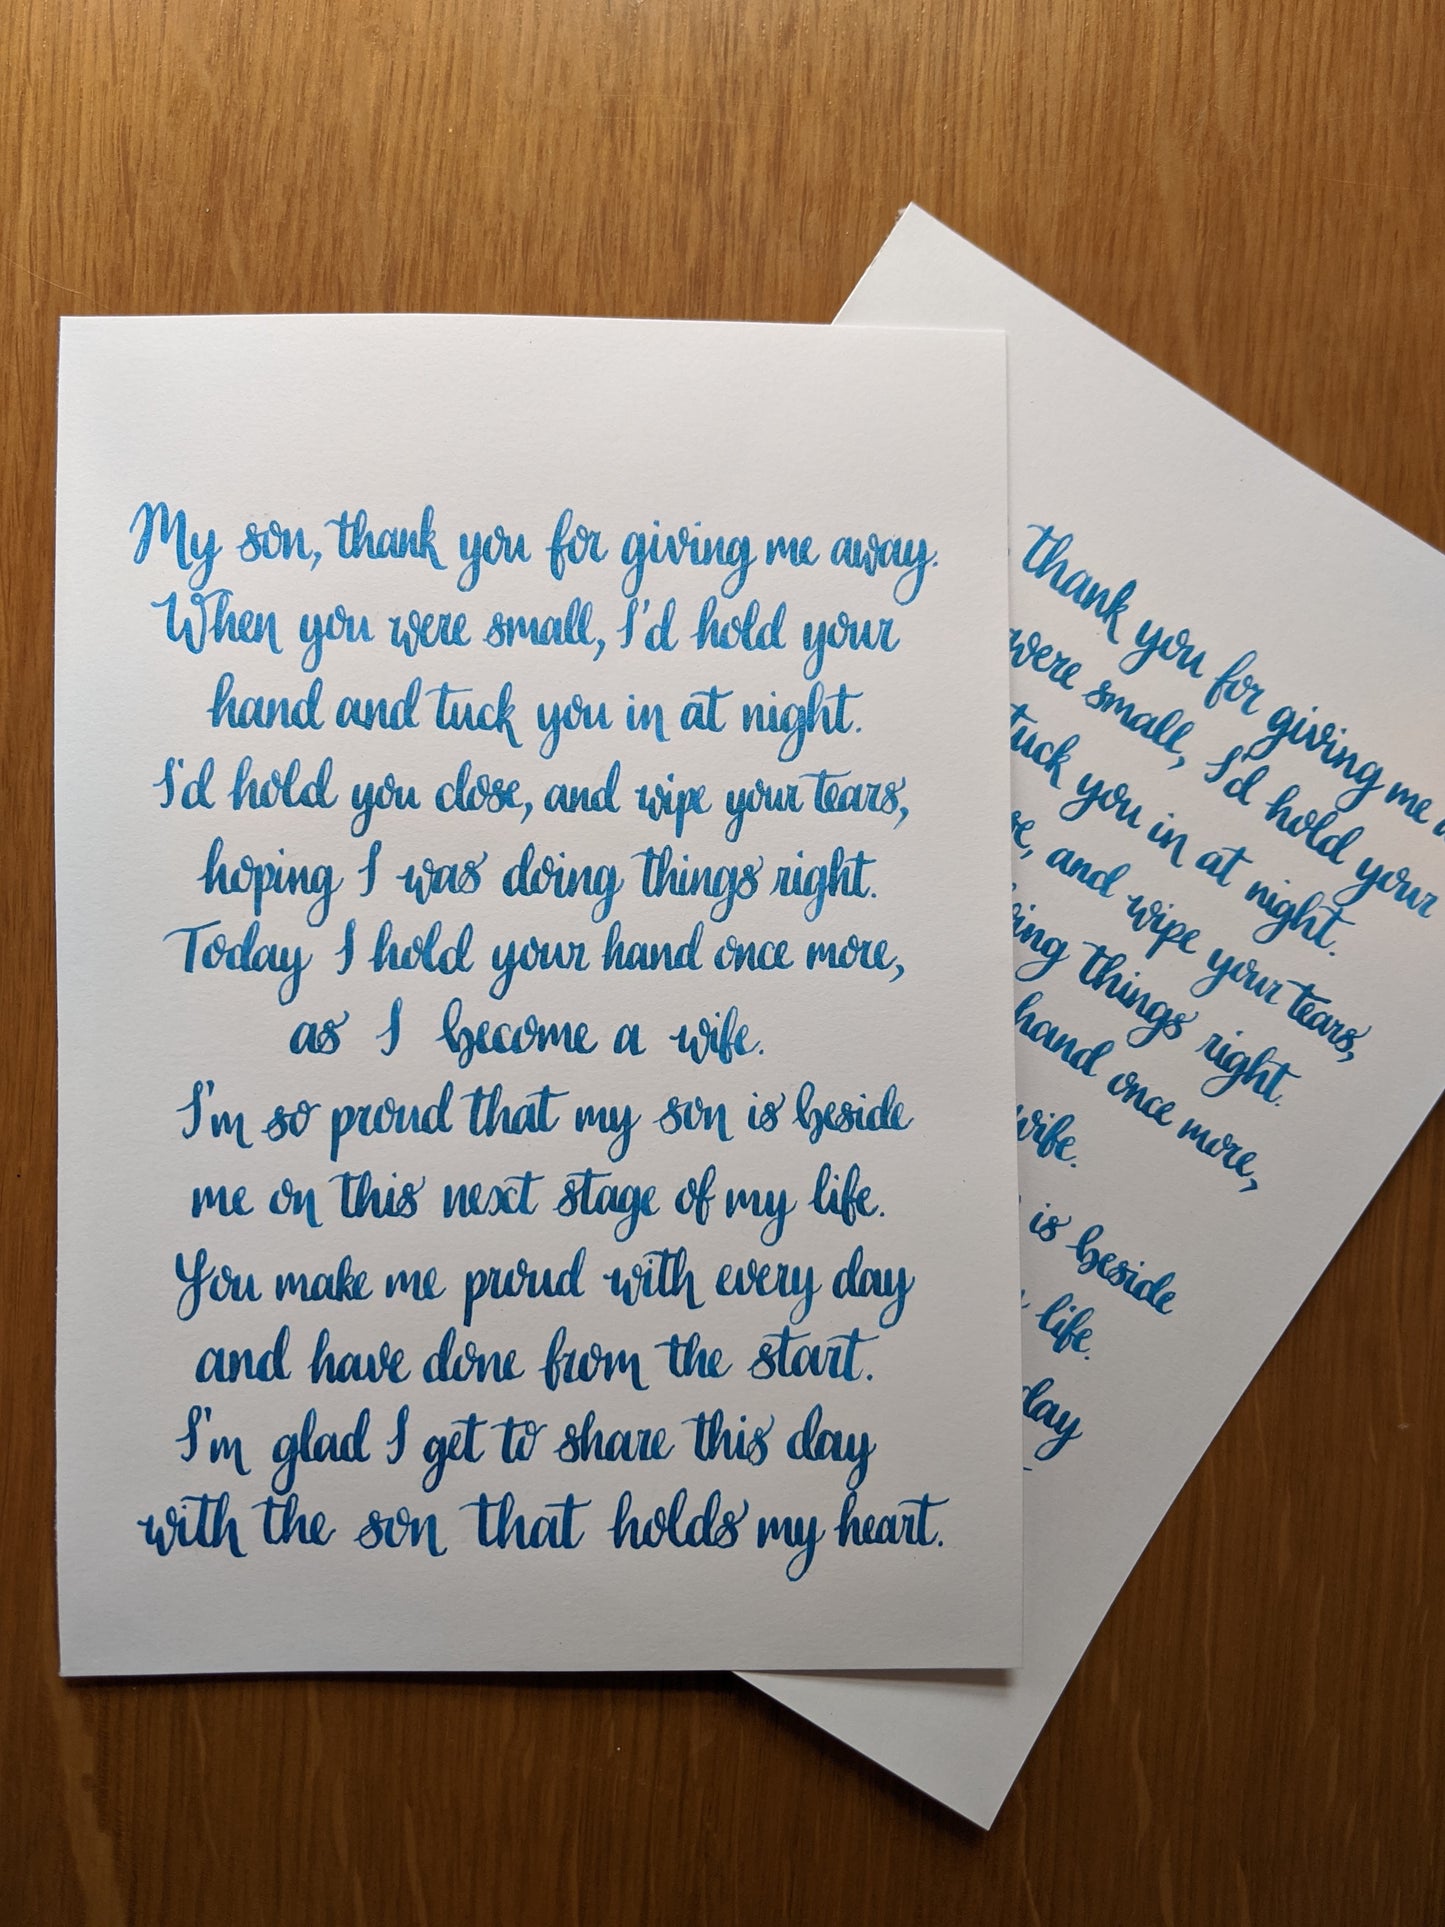 My son, thank you for giving me away.
When you were small, I'd hold your
hand and tuck you in at night.
I'd hold you close, and wipe your tears,
hoping I was doing things right.
Today I hold your hand once more,
as I become a wife.
I'm so proud that my son is beside
me on this next stage of my life.
You make me proud with every day
and have done from the start.
I'm glad I get to share this day
with the son that holds my heart.
thank you for giving me
were small, I'd hold your
tuck you in at night.
and wipe your tears,
things right.
hand once more,
wife.
is beside
life.
day